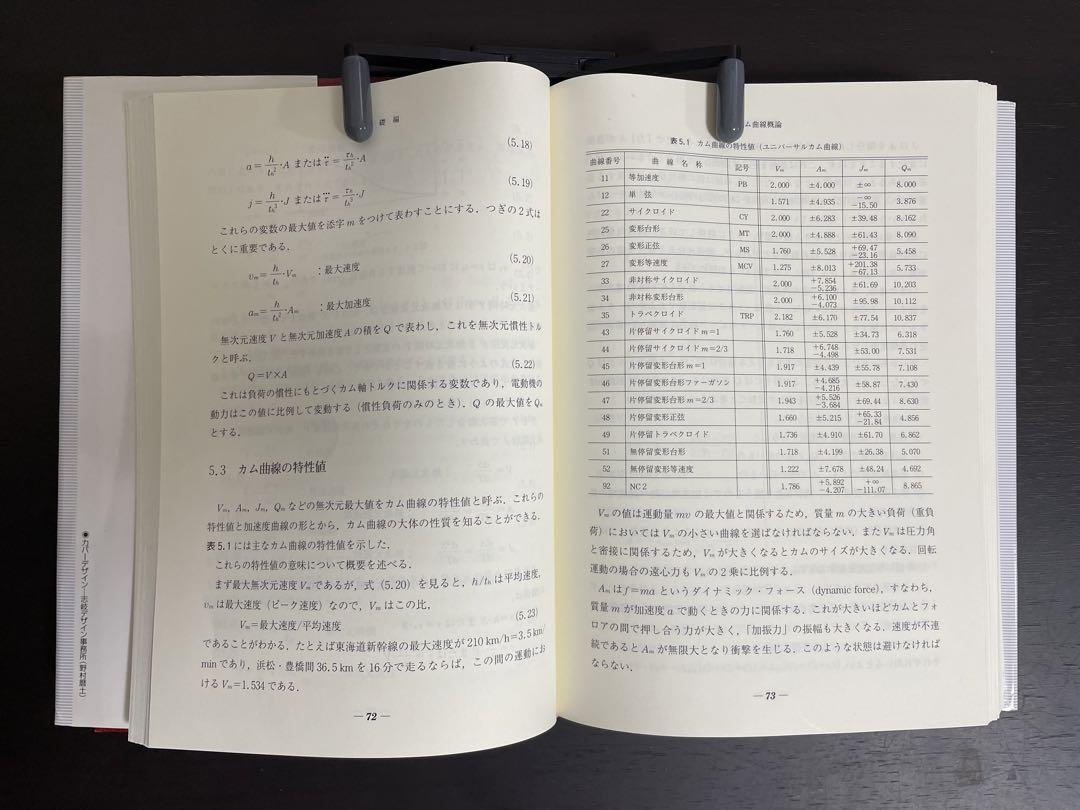 礎論
a = h/t_h² · A または τ̈ = τ_h/t_h² · A (5.18)
j = h/t_h³ · J または τ⃛ = τ_h/t_h³ · J (5.19)
これらの変数の最大値を添字 m をつけて表わすことにする．つぎの2式は
とくに重要である．
v_m = h/t_h · V_m ：最大速度 (5.20)
a_m = h/t_h² · A_m ：最大加速度 (5.21)
無次元速度 V と無次元加速度 A の積を Q で表わし，これを無次元慣性トル
クと呼ぶ．
Q = V×A (5.22)
これは負荷の慣性にもとづくカム軸トルクに関係する変数であり，電動機の
動力はこの値に比例して変動する（慣性負荷のみのとき）．Q の最大値を Q_m
とする．
5.3 カム曲線の特性値
V_m, A_m, J_m, Q_m などの無次元最大値をカム曲線の特性値と呼ぶ．これらの
特性値と加速度曲線の形とから，カム曲線の大体の性質を知ることができる．
表5.1には主なカム曲線の特性値を示した．
これらの特性値の意味について概要を述べる．
まず最大無次元速度 V_m であるが，式（5.20）を見ると，h/t_h は平均速度，
v_m は最大速度（ピーク速度）なので，V_m はこの比，
V_m = 最大速度/平均速度 (5.23)
であることがわかる．たとえば東海道新幹線の最大速度が 210 km/h=3.5 km/
min であり，浜松・豊橋間 36.5 km を 16 分で走るならば，この間の運動にお
ける V_m=1.534 である．
— 72 —
●カバーデザイン―志岐デザイン事務所（野村磨士）
ム曲線概論
表5.1 カム曲線の特性値（ユニバーサルカム曲線）
曲線番号 曲線名称 記号 V_m A_m J_m Q_m
11 等加速度 PB 2.000 ±4.000 ±∞ 8.000
12 単弦 1.571 ±4.935 −∞ −15.50 3.876
22 サイクロイド CY 2.000 ±6.283 ±39.48 8.162
25 変形台形 MT 2.000 ±4.888 ±61.43 8.090
26 変形正弦 MS 1.760 ±5.528 +69.47 −23.16 5.458
27 変形等速度 MCV 1.275 ±8.013 +201.38 −67.13 5.733
33 非対称サイクロイド 2.000 +7.854 −5.236 ±61.69 10.203
34 非対称変形台形 2.000 +6.100 −4.073 ±95.98 10.112
35 トラペクロイド TRP 2.182 ±6.170 ±77.54 10.837
43 片停留サイクロイド m=1 1.760 ±5.528 ±34.73 6.318
44 片停留サイクロイド m=2/3 1.718 +6.748 −4.498 ±53.00 7.531
45 片停留変形台形 m=1 1.917 ±4.439 ±55.78 7.108
46 片停留変形台形ファーガソン 1.917 +4.685 −4.216 ±58.87 7.430
47 片停留変形台形 m=2/3 1.943 +5.526 −3.684 ±69.44 8.630
48 片停留変形正弦 1.660 ±5.215 +65.33 −21.84 4.856
49 片停留トラペクロイド 1.736 ±4.910 ±61.70 6.862
51 無停留変形台形 1.718 ±4.199 ±26.38 5.070
52 無停留変形等速度 1.222 ±7.678 ±48.24 4.692
92 NC2 1.786 +5.892 −4.207 +∞ −111.07 8.865
V_m の値は運動量 mv の最大値と関係するため，質量 m の大きい負荷（重負
荷）においては V_m の小さい曲線を選ばなければならない．また V_m は圧力角
と密接に関係するため，V_m が大きくなるとカムのサイズが大きくなる．回転
運動の場合の遠心力も V_m の2乗に比例する．
A_m は f=ma というダイナミック・フォース（dynamic force），すなわち，
質量 m が加速度 a で動くときの力に関係する．これが大きいほどカムとフォ
ロアの間で押し合う力が大きく，「加振力」の振幅も大きくなる．速度が不連
続であると A_m が無限大となり衝撃を生じる．このような状態は避けなければ
ならない．
— 73 —